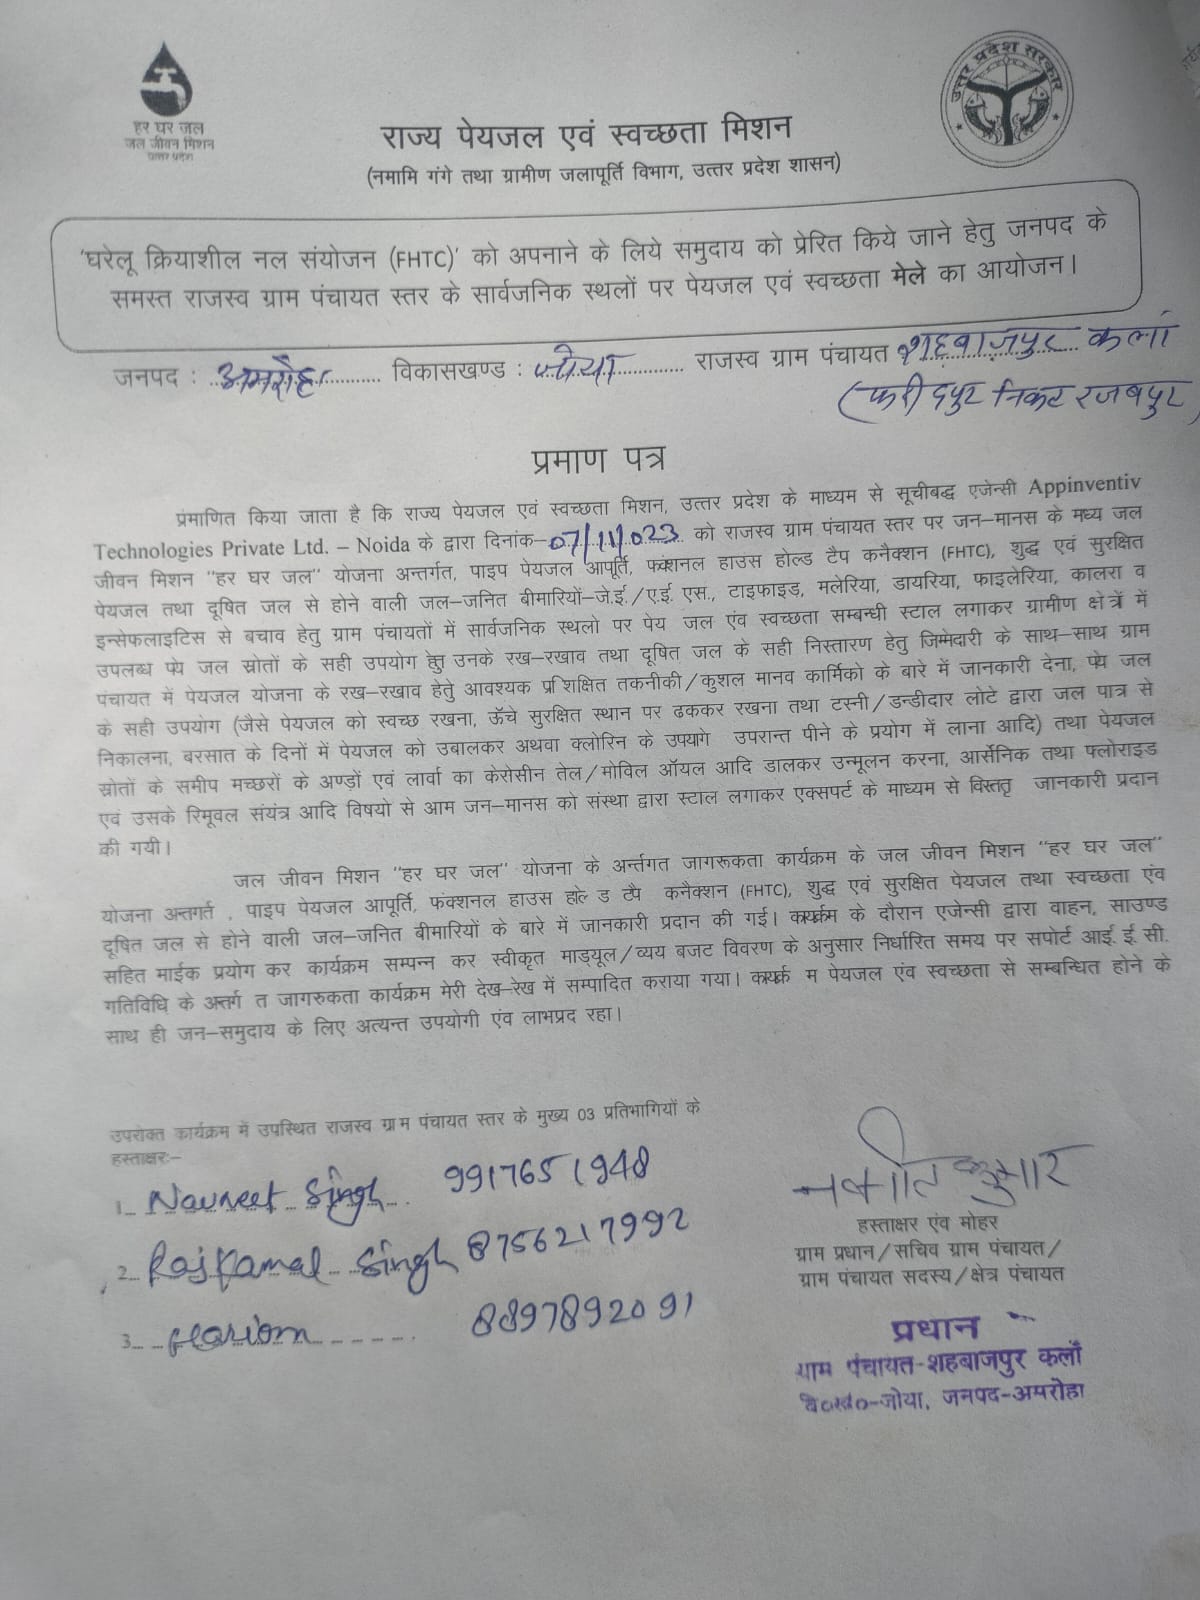 हर घर जल
जल जीवन मिशन
उत्तर प्रदेश
उत्तर प्रदेश सरकार
राज्य पेयजल एवं स्वच्छता मिशन
(नमामि गंगे तथा ग्रामीण जलापूर्ति विभाग, उत्तर प्रदेश शासन)
'घरेलू क्रियाशील नल संयोजन (FHTC)' को अपनाने के लिये समुदाय को प्रेरित किये जाने हेतु जनपद के
समस्त राजस्व ग्राम पंचायत स्तर के सार्वजनिक स्थलों पर पेयजल एवं स्वच्छता मेले का आयोजन।
जनपद : अमरोहा विकासखण्ड : जोया राजस्व ग्राम पंचायत शहबाजपुर कलां
(फरीदपुर निकट रजबपुर)
प्रमाण पत्र
प्रंमाणित किया जाता है कि राज्य पेयजल एवं स्वच्छता मिशन, उत्तर प्रदेश के माध्यम से सूचीबद्ध एजेन्सी Appinventiv
Technologies Private Ltd. – Noida के द्वारा दिनांक-07/11/023 को राजस्व ग्राम पंचायत स्तर पर जन–मानस के मध्य जल
जीवन मिशन "हर घर जल" योजना अन्तर्गत, पाइप पेयजल आपूर्ति, फंक्शनल हाउस होल्ड टैप कनैक्शन (FHTC), शुद्ध एवं सुरक्षित
पेयजल तथा दूषित जल से होने वाली जल–जनित बीमारियों–जे.ई./ए.ई. एस., टाइफाइड, मलेरिया, डायरिया, फाइलेरिया, कालरा व
इन्सेफलाइटिस से बचाव हेतु ग्राम पंचायतों में सार्वजनिक स्थलो पर पेय जल एंव स्वच्छता सम्बन्धी स्टाल लगाकर ग्रामीण क्षेत्रों में
उपलब्ध पेय जल स्रोतों के सही उपयोग हेतु उनके रख–रखाव तथा दूषित जल के सही निस्तारण हेतु जिम्मेदारी के साथ–साथ ग्राम
पंचायत में पेयजल योजना के रख–रखाव हेतु आवश्यक प्रशिक्षित तकनीकी/कुशल मानव कार्मिको के बारे में जानकारी देना, पेय जल
के सही उपयोग (जैसे पेयजल को स्वच्छ रखना, ऊँचे सुरक्षित स्थान पर ढककर रखना तथा टस्नी/डन्डीदार लोटे द्वारा जल पात्र से
निकालना, बरसात के दिनों में पेयजल को उबालकर अथवा क्लोरिन के उपयोग उपरान्त पीने के प्रयोग में लाना आदि) तथा पेयजल
स्रोतों के समीप मच्छरों के अण्डों एवं लार्वा का केरोसीन तेल/मोविल ऑयल आदि डालकर उन्मूलन करना, आर्सेनिक तथा फ्लोराइड
एवं उसके रिमूवल संयंत्र आदि विषयो से आम जन–मानस को संस्था द्वारा स्टाल लगाकर एक्सपर्ट के माध्यम से विस्तृत जानकारी प्रदान
की गयी।
जल जीवन मिशन "हर घर जल" योजना के अर्न्तगत जागरूकता कार्यक्रम के जल जीवन मिशन "हर घर जल"
योजना अन्तगर्त , पाइप पेयजल आपूर्ति, फंक्शनल हाउस होल्ड टैप कनैक्शन (FHTC), शुद्ध एवं सुरक्षित पेयजल तथा स्वच्छता एंव
दूषित जल से होने वाली जल–जनित बीमारियों के बारे में जानकारी प्रदान की गई। कार्यक्रम के दौरान एजेन्सी द्वारा वाहन, साउण्ड
सहित माईक प्रयोग कर कार्यक्रम सम्पन्न कर स्वीकृत माड्यूल/व्यय बजट विवरण के अनुसार निर्धारित समय पर सपोर्ट आई. ई. सी.
गतिविधि के अन्तर्गत जागरुकता कार्यक्रम मेरी देख–रेख में सम्पादित कराया गया। कार्यक्रम पेयजल एंव स्वच्छता से सम्बन्धित होने के
साथ ही जन–समुदाय के लिए अत्यन्त उपयोगी एंव लाभप्रद रहा।
उपरोक्त कार्यक्रम में उपस्थित राजस्व ग्राम पंचायत स्तर के मुख्य 03 प्रतिभागियों के
हस्ताक्षर:–
1. Navneet Singh 9917651948
2. Rajkamal Singh 8756217992
3. Hariom 8897892091
नवनीत कुमार
हस्ताक्षर एंव मोहर
ग्राम प्रधान/सचिव ग्राम पंचायत/
ग्राम पंचायत सदस्य/क्षेत्र पंचायत
प्रधान
ग्राम पंचायत-शहबाजपुर कलाँ
वि०ख०-जोया, जनपद-अमरोहा